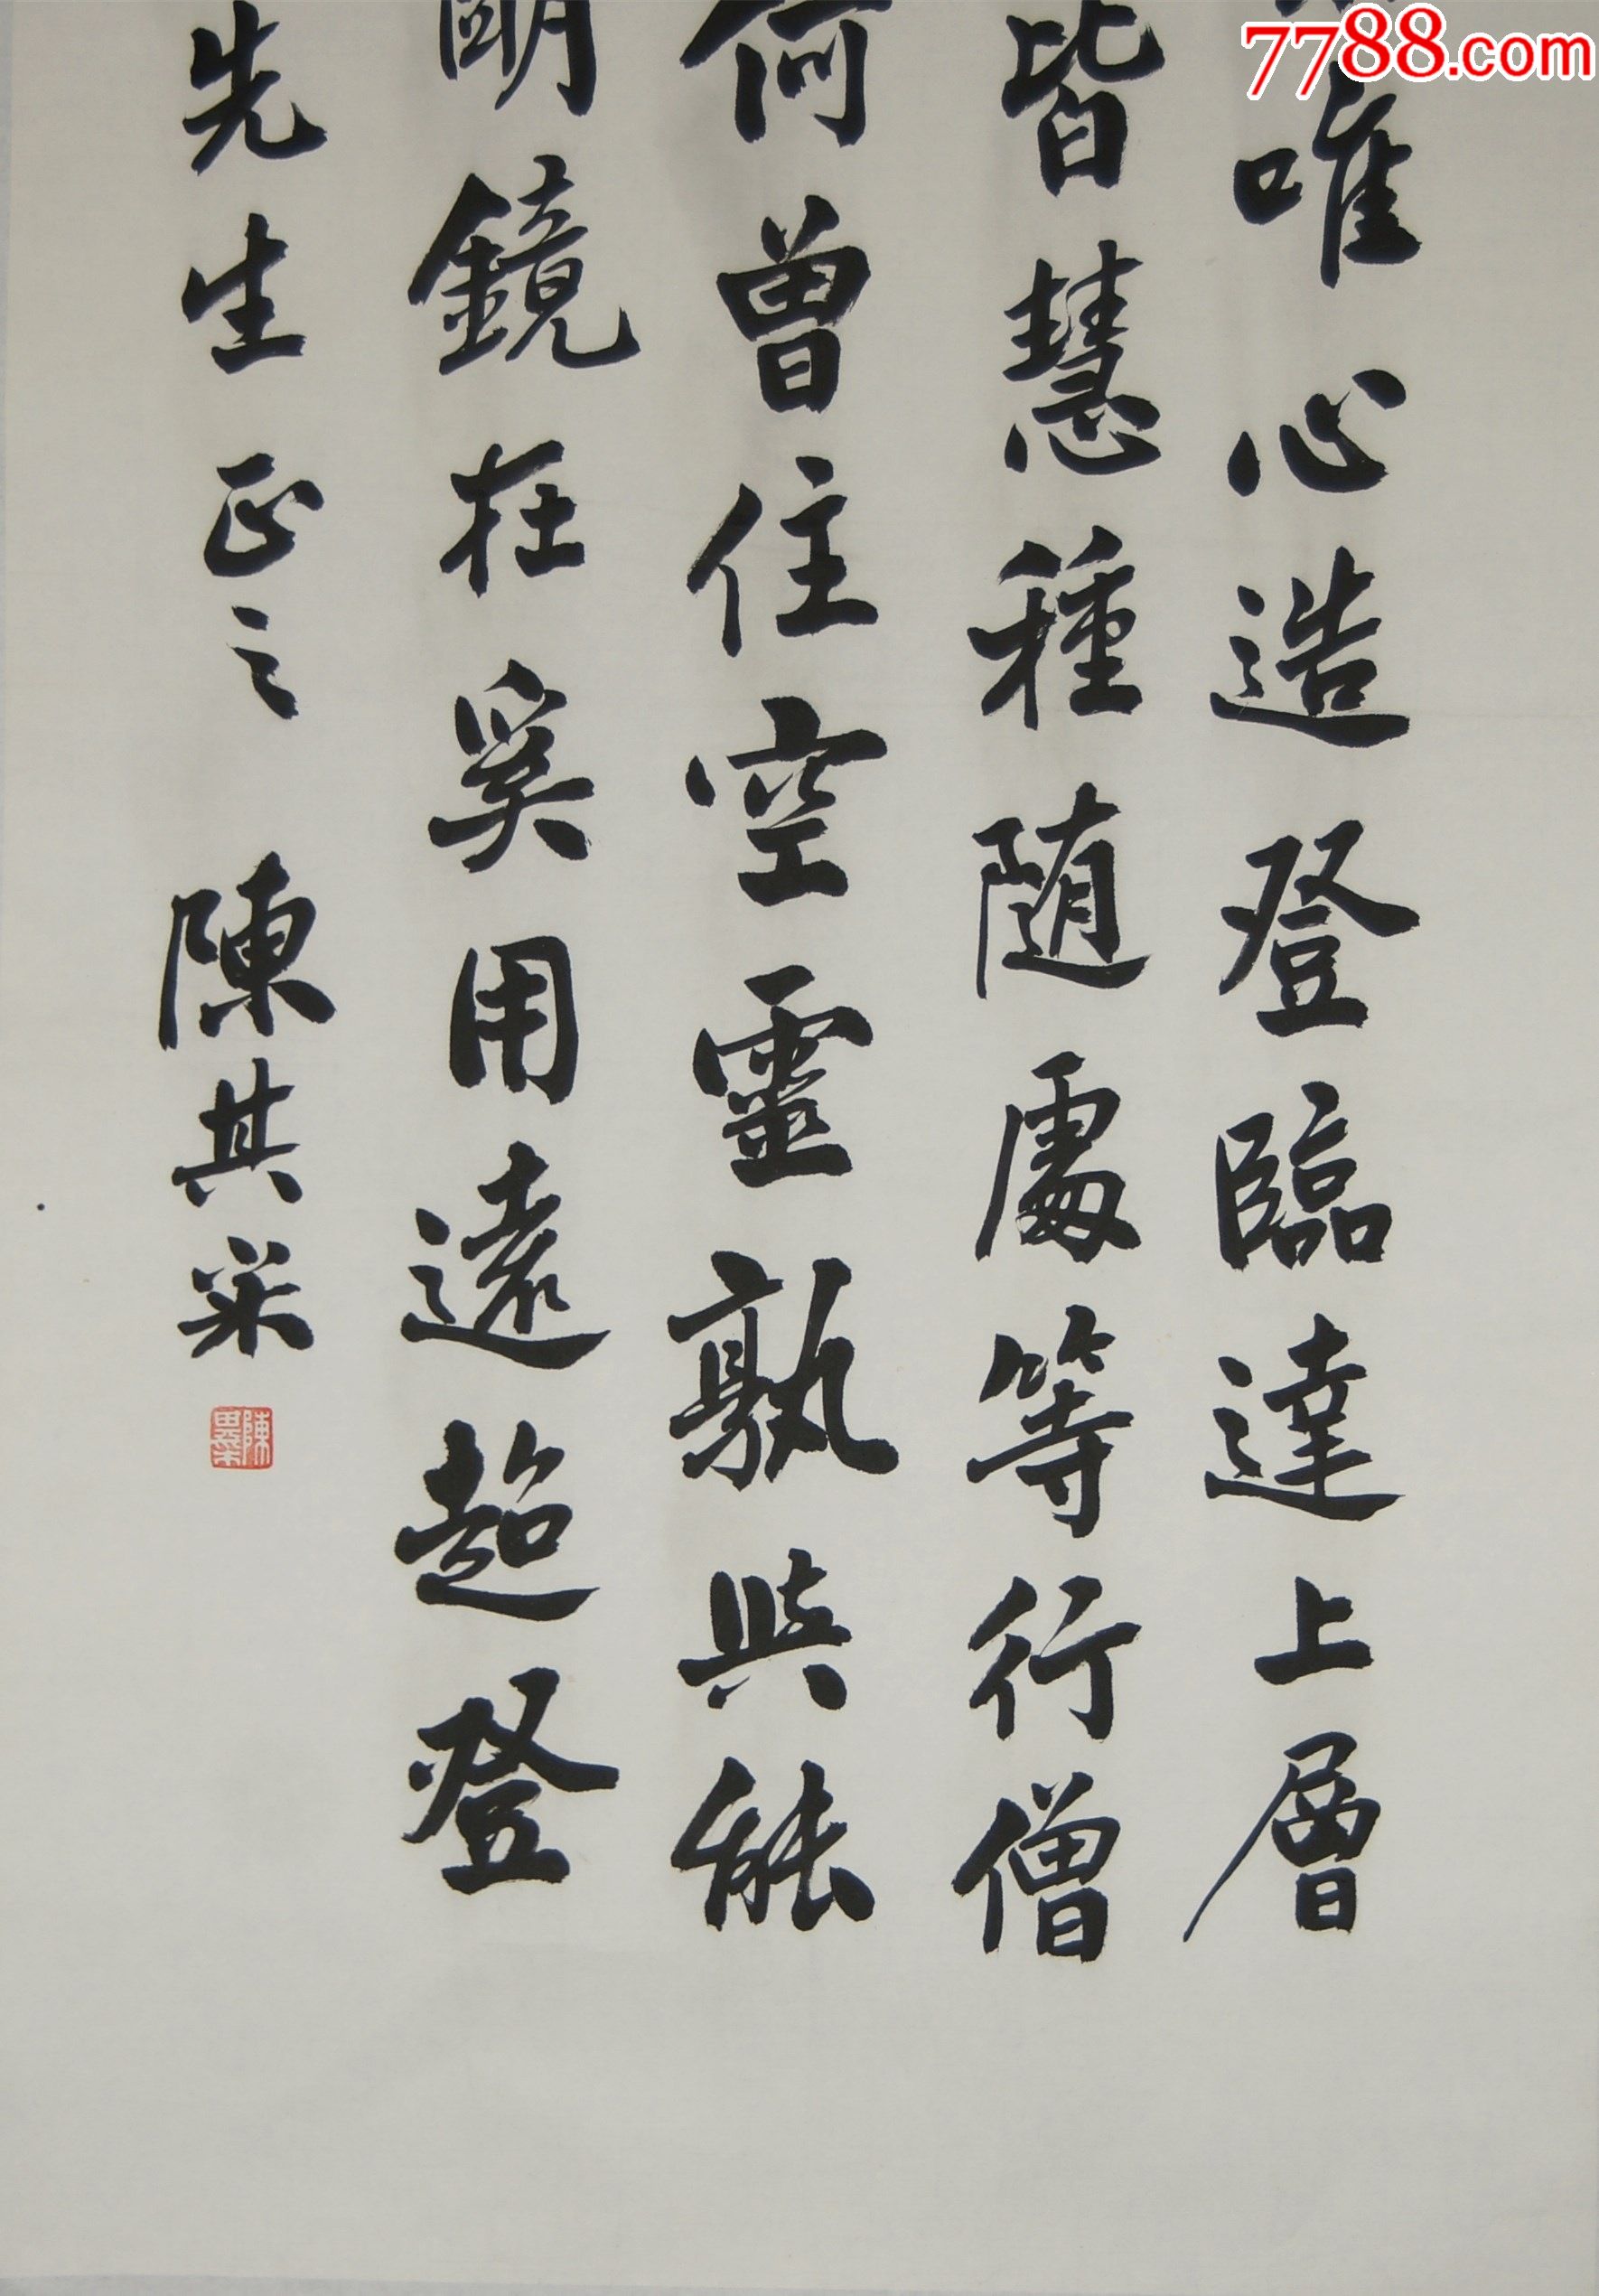 7788.com
唯心造登臨達上層
皆慧種随處等行僧
何曾住空靈孰與能
明鏡在奚用遠超登
先生正之 陳其采